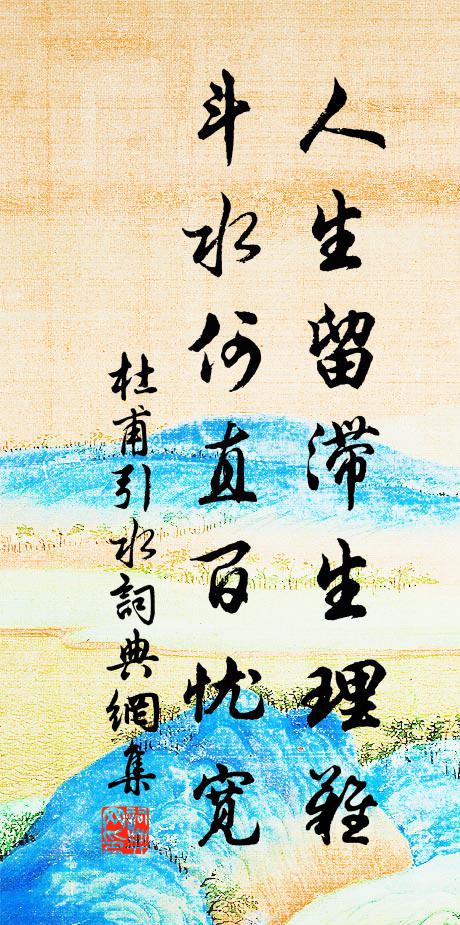 人生留滞生理难
斗水何直百忧宽
杜甫引水詞典網集